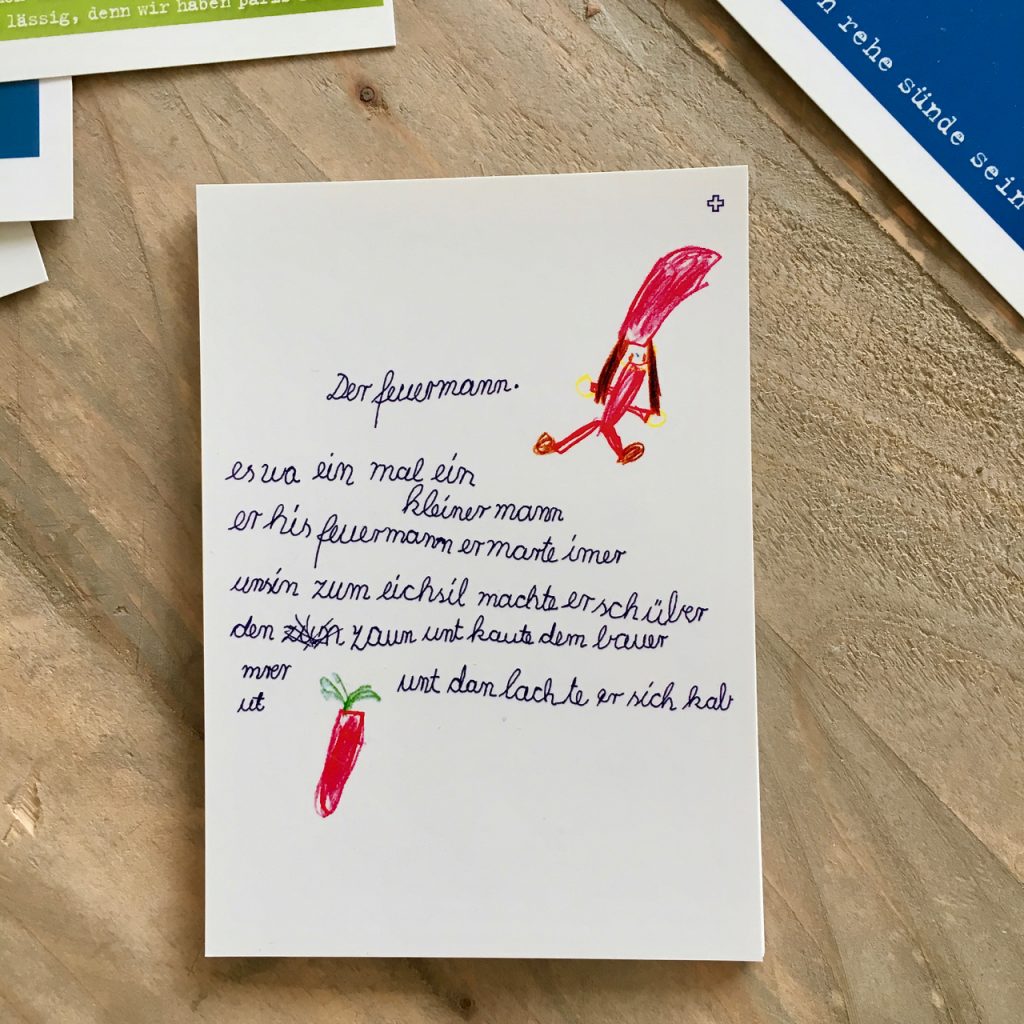 lässig, denn wir haben paris
n rehe sünde sein
Der feuermann.
es wa ein mal ein
kleiner mann
er his feuermann er marte imer
unsin zum eichsil machte er sch über
den zaun unt kaute dem bauer
mrer unt dan lachte er sich kab
ut